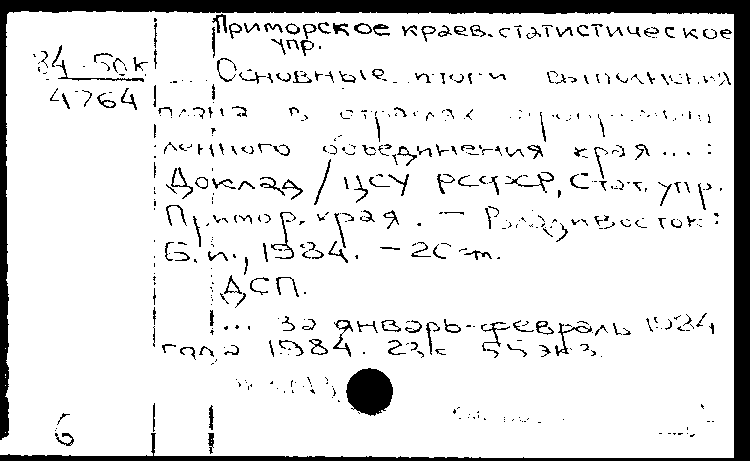 Приморское краев. статистическое
упр.
84-50к
4764
... Основные итоги выполнения
плана в отраслях
ленного объединения края ... :
Доклад / ЦСУ РСФСР, Стат. упр.
Примор. края. - Владивосток:
Б.и., 1984. - 20 см.
ДСП.
... За январь-февраль 1984
года 1984. 23с 55 экз.
6